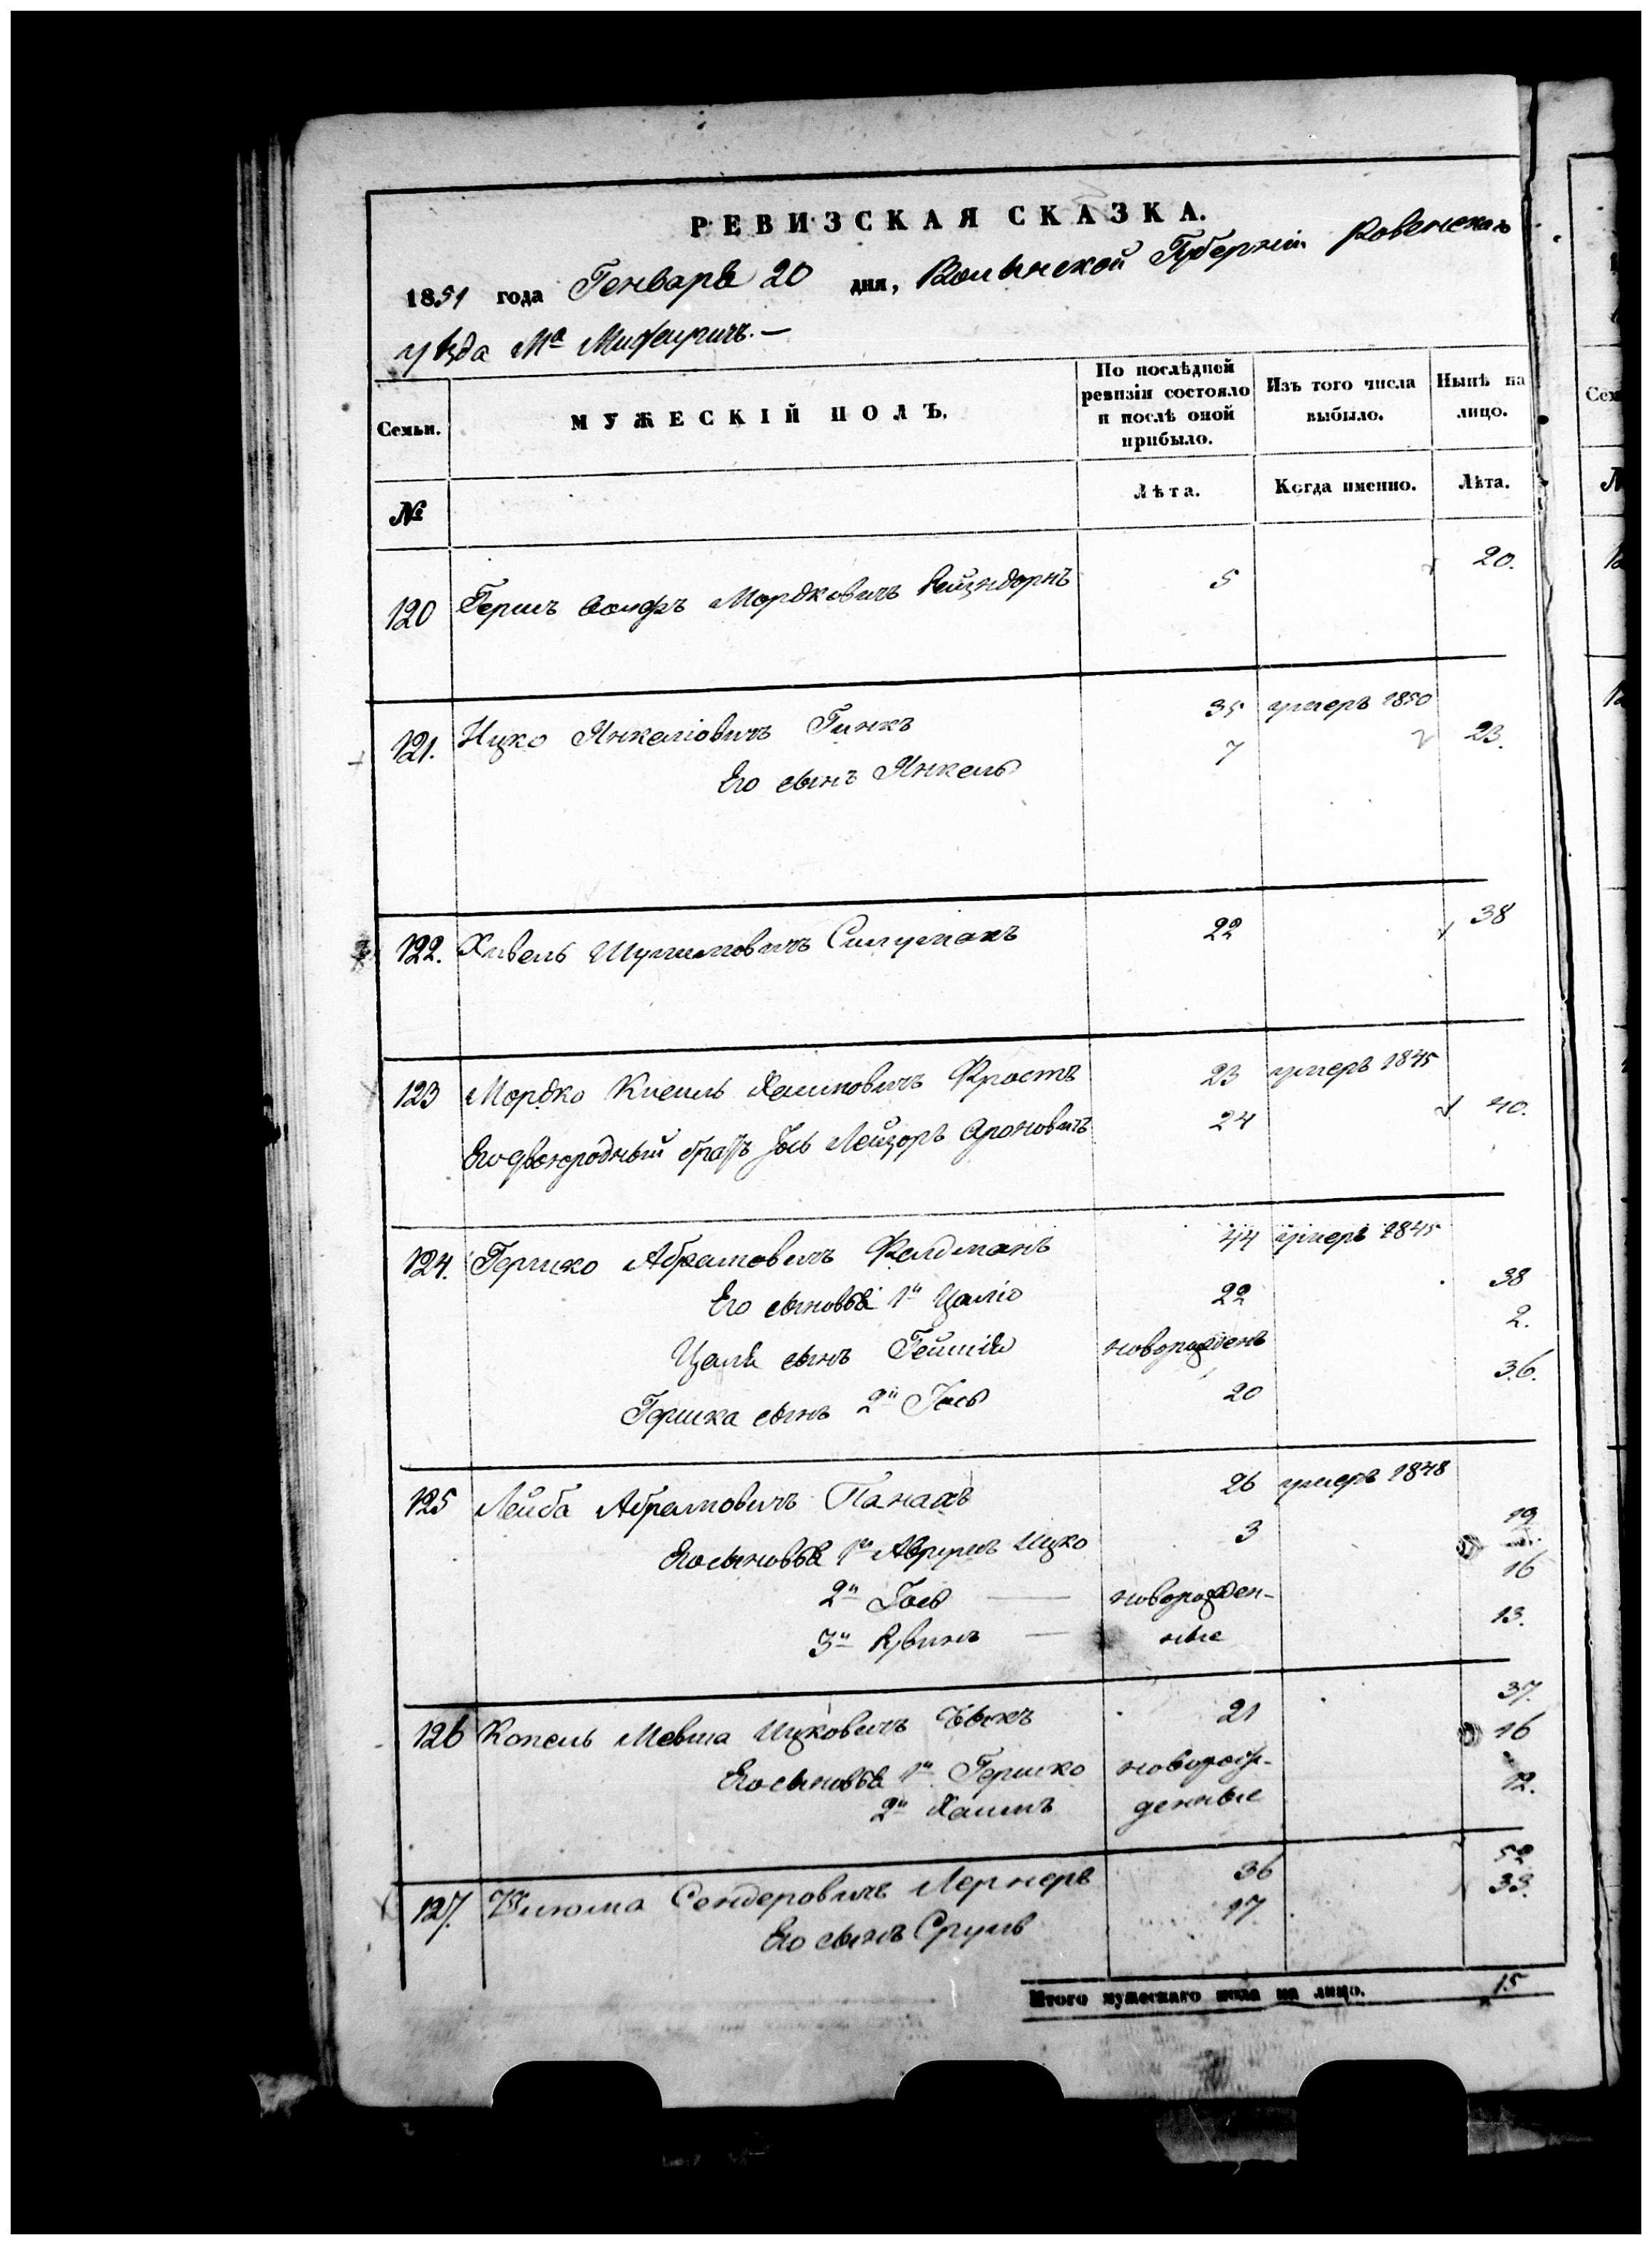 РЕВИЗСКАЯ СКАЗКА.
1851 года Генваря 20 дня, Волынской Губерніи Ровенскаго
уѣзда Мᵃ Межиричъ.—
Семьи.
МУЖЕСКІЙ ПОЛЪ.
По послѣдней ревизіи состояло и послѣ оной прибыло.
Изъ того числа выбыло.
Нынѣ на лицо.
№
Лѣта.
Когда именно.
Лѣта.
120 Гершъ Мордковичъ 5 20.
121. Ицко Янкеліовичъ Гинкъ 35 умеръ 1850
Его сынъ Янкель 7 23.
122. Хивель 22 38
123 Мордко Кисиль Хаимовичъ Фростъ 23 умеръ 1845
Его двоюродный братъ Іось Лейзоръ Ароновичъ 24 40.
124. Гершко Абрамовичъ Фелдманъ 44 умеръ 1845
Его сыновья 1й Цаліо 22 38
Цаля сынъ новорожденъ 2.
Гершка сынъ 2й Іось 20 36.
125 Лейба Абрамовичъ Панахъ 26 умеръ 1848
Его сыновья 1й Аврумъ Ицко 3 19
2й Іось — новорожден- 16
3й Рувинъ — ные 13.
126 Копель Мевша Ицковичъ 21 37.
Его сыновья 1й Гершко новорож- 16
2й Хаимъ денные 12.
127. Сендеровичъ Лернеръ 36 52
Его сынъ Сруль 17 33.
Итого мужескаго пола на лицо. 15